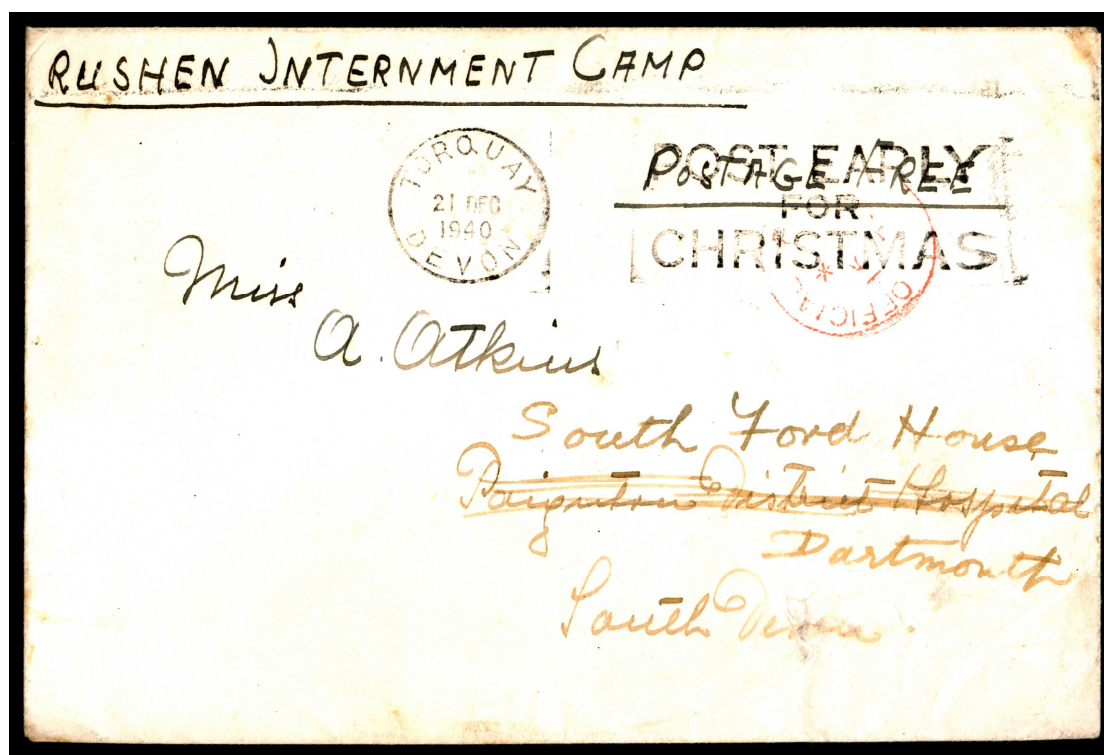 RUSHEN INTERNMENT CAMP
TORQUAY
21 DEC
1940
DEVON
POST EARLY
FOR
CHRISTMAS
POSTAGE FREE
OFFICIAL
Miss
A. Atkins
South Ford House
Paignton District Hospital
Dartmouth
South Devon.